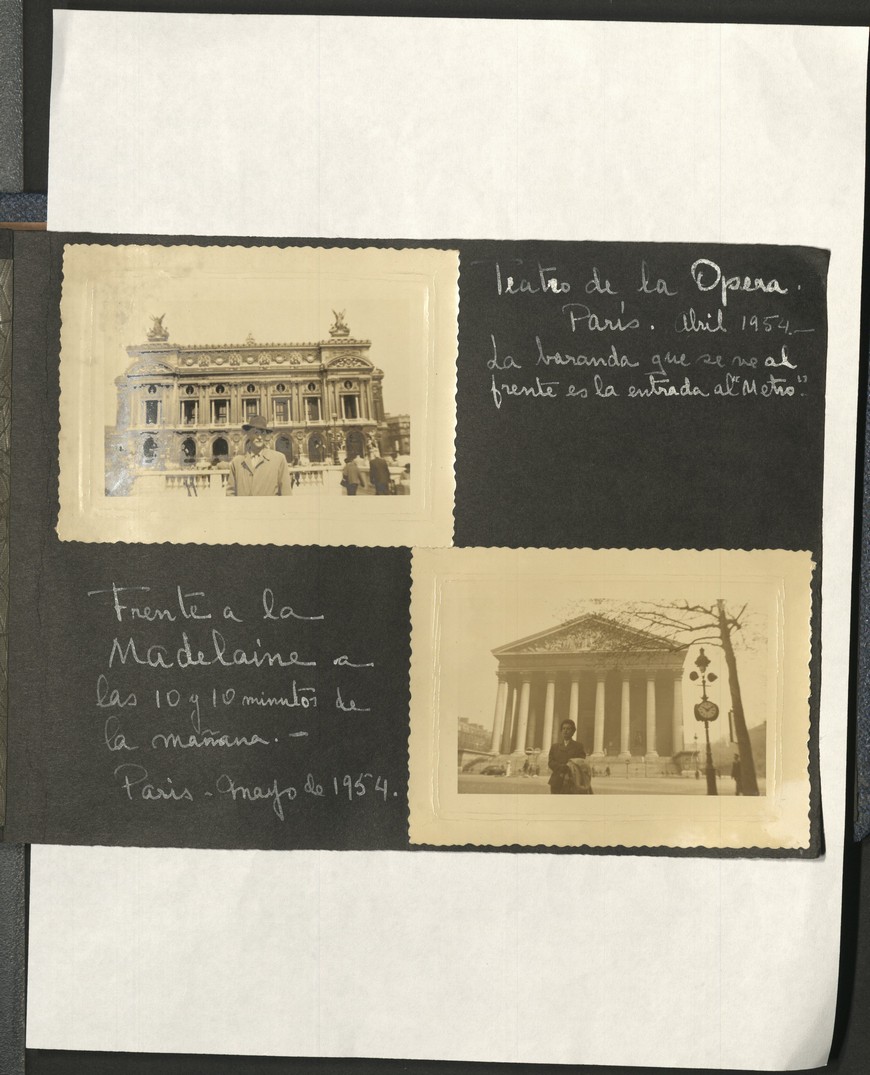 Teatro de la Opera.
París. Abril 1954.—
La baranda que se ve al
frente es la entrada al "Metro".
Frente a la
Madelaine a
las 10 y 10 minutos de
la mañana. —
Paris - Mayo de 1954.